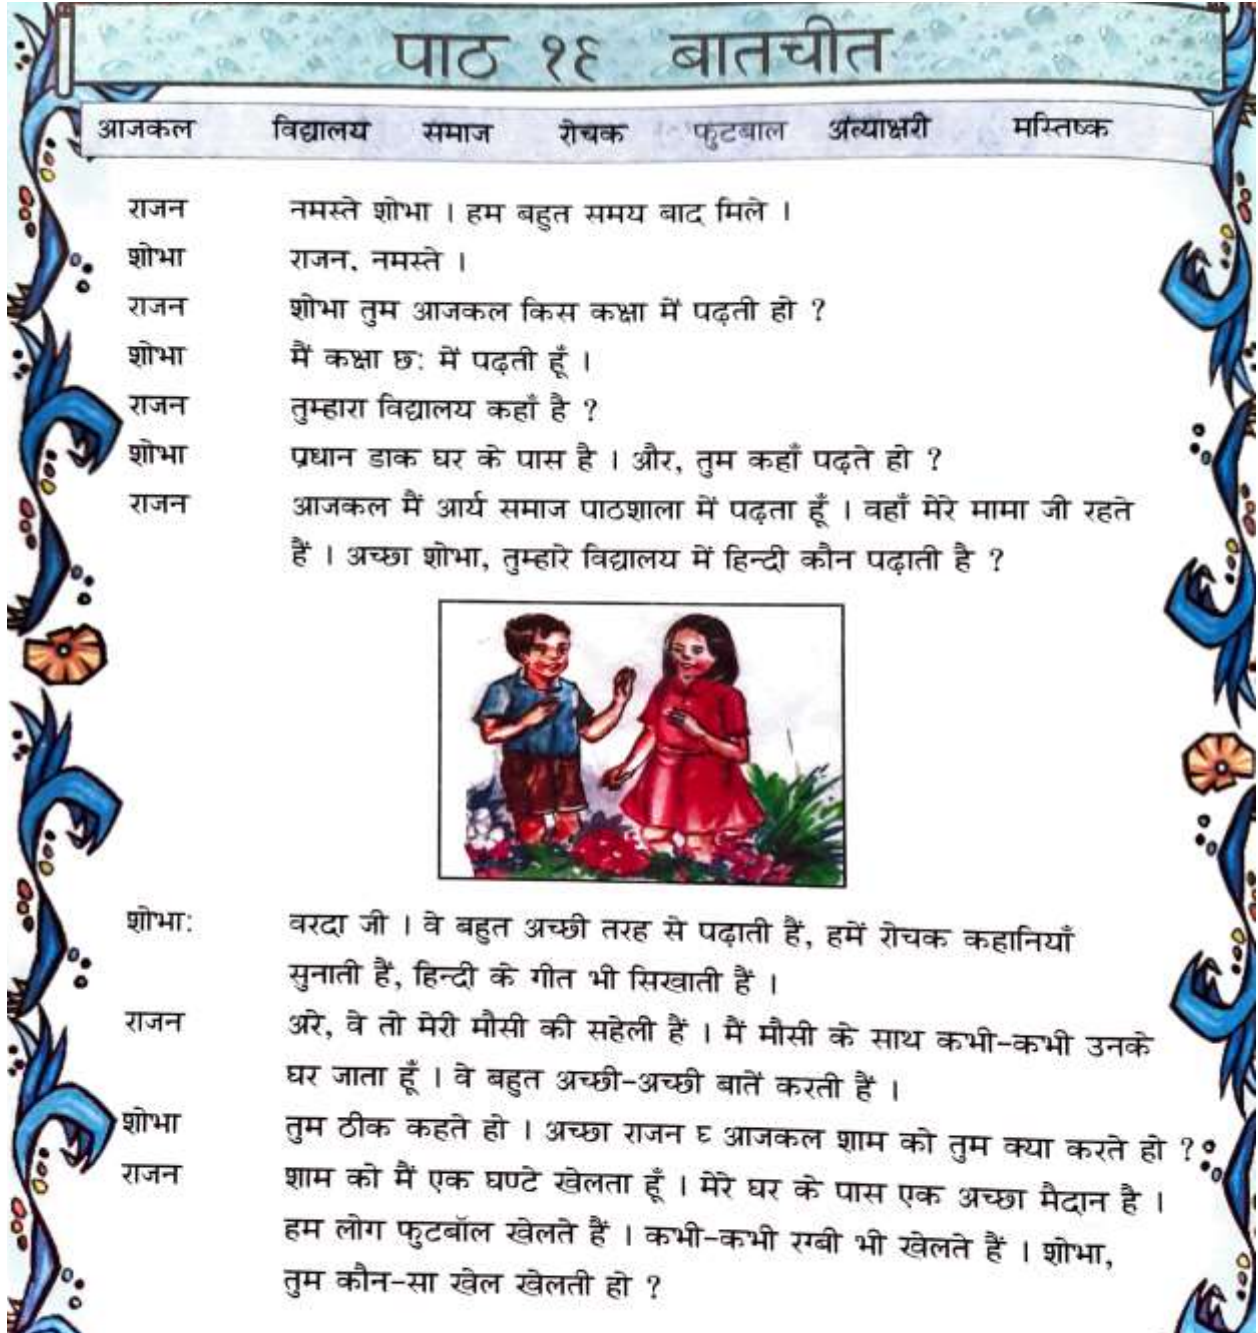 पाठ १६ बातचीत
आजकल विद्यालय समाज रोचक फुटबाल अंत्याक्षरी मस्तिष्क
राजन नमस्ते शोभा । हम बहुत समय बाद मिले ।
शोभा राजन, नमस्ते ।
राजन शोभा तुम आजकल किस कक्षा में पढ़ती हो ?
शोभा मैं कक्षा छः में पढ़ती हूँ ।
राजन तुम्हारा विद्यालय कहाँ है ?
शोभा प्रधान डाक घर के पास है । और, तुम कहाँ पढ़ते हो ?
राजन आजकल मैं आर्य समाज पाठशाला में पढ़ता हूँ । वहाँ मेरे मामा जी रहते
हैं । अच्छा शोभा, तुम्हारे विद्यालय में हिन्दी कौन पढ़ाती है ?
शोभा: वरदा जी । वे बहुत अच्छी तरह से पढ़ाती हैं, हमें रोचक कहानियाँ
सुनाती हैं, हिन्दी के गीत भी सिखाती हैं ।
राजन अरे, वे तो मेरी मौसी की सहेली हैं । मैं मौसी के साथ कभी-कभी उनके
घर जाता हूँ । वे बहुत अच्छी-अच्छी बातें करती हैं ।
शोभा तुम ठीक कहते हो । अच्छा राजन घ आजकल शाम को तुम क्या करते हो ?
राजन शाम को मैं एक घण्टे खेलता हूँ । मेरे घर के पास एक अच्छा मैदान है ।
हम लोग फुटबॉल खेलते हैं । कभी-कभी रग्बी भी खेलते हैं । शोभा,
तुम कौन-सा खेल खेलती हो ?